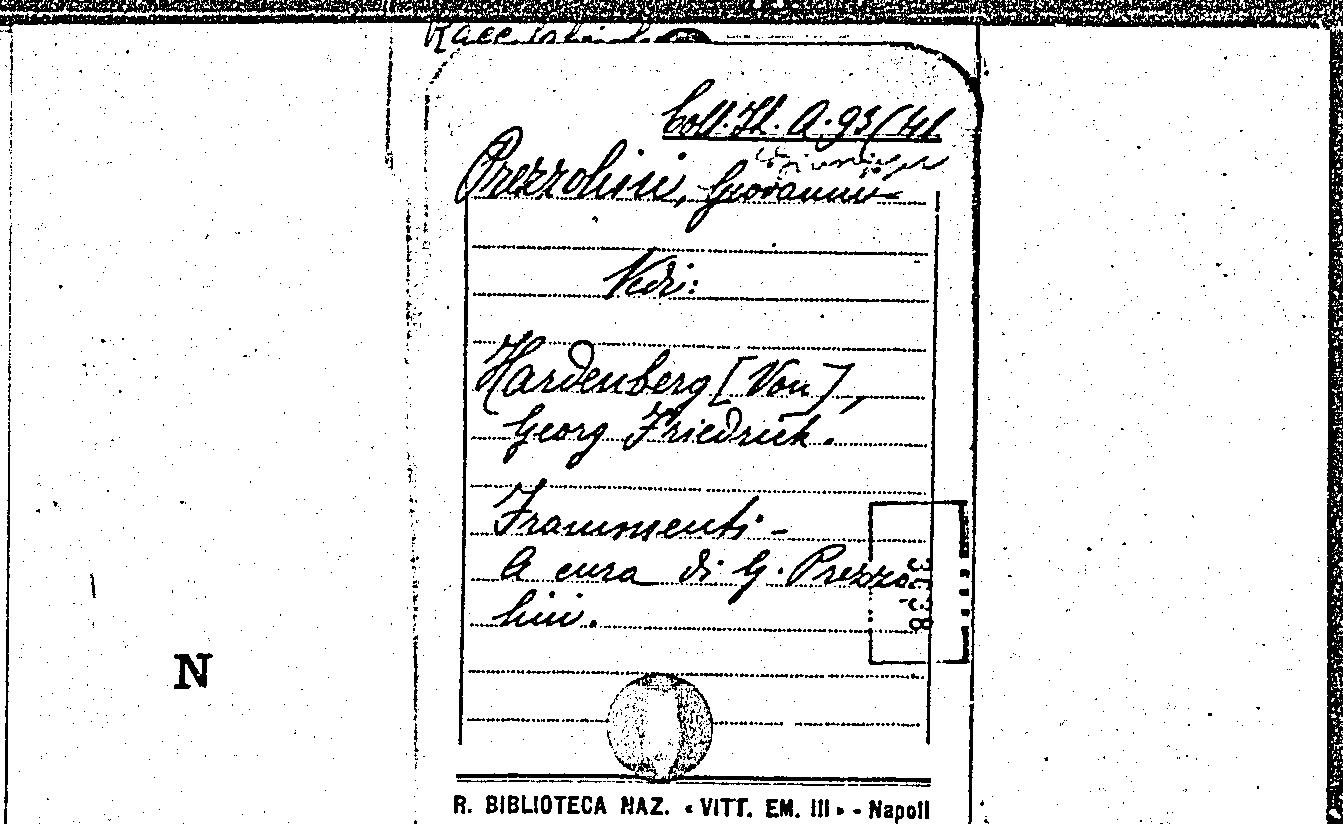 Coll. It. A. 93 (41
Prezzolini, Giovanni
Giuseppe
Vedi:
Hardenberg [Von],
Georg Friedrich.
Frammenti -
A cura di G. Prezzo
lini.
N
R. BIBLIOTECA NAZ. « VITT. EM. III » - Napoli